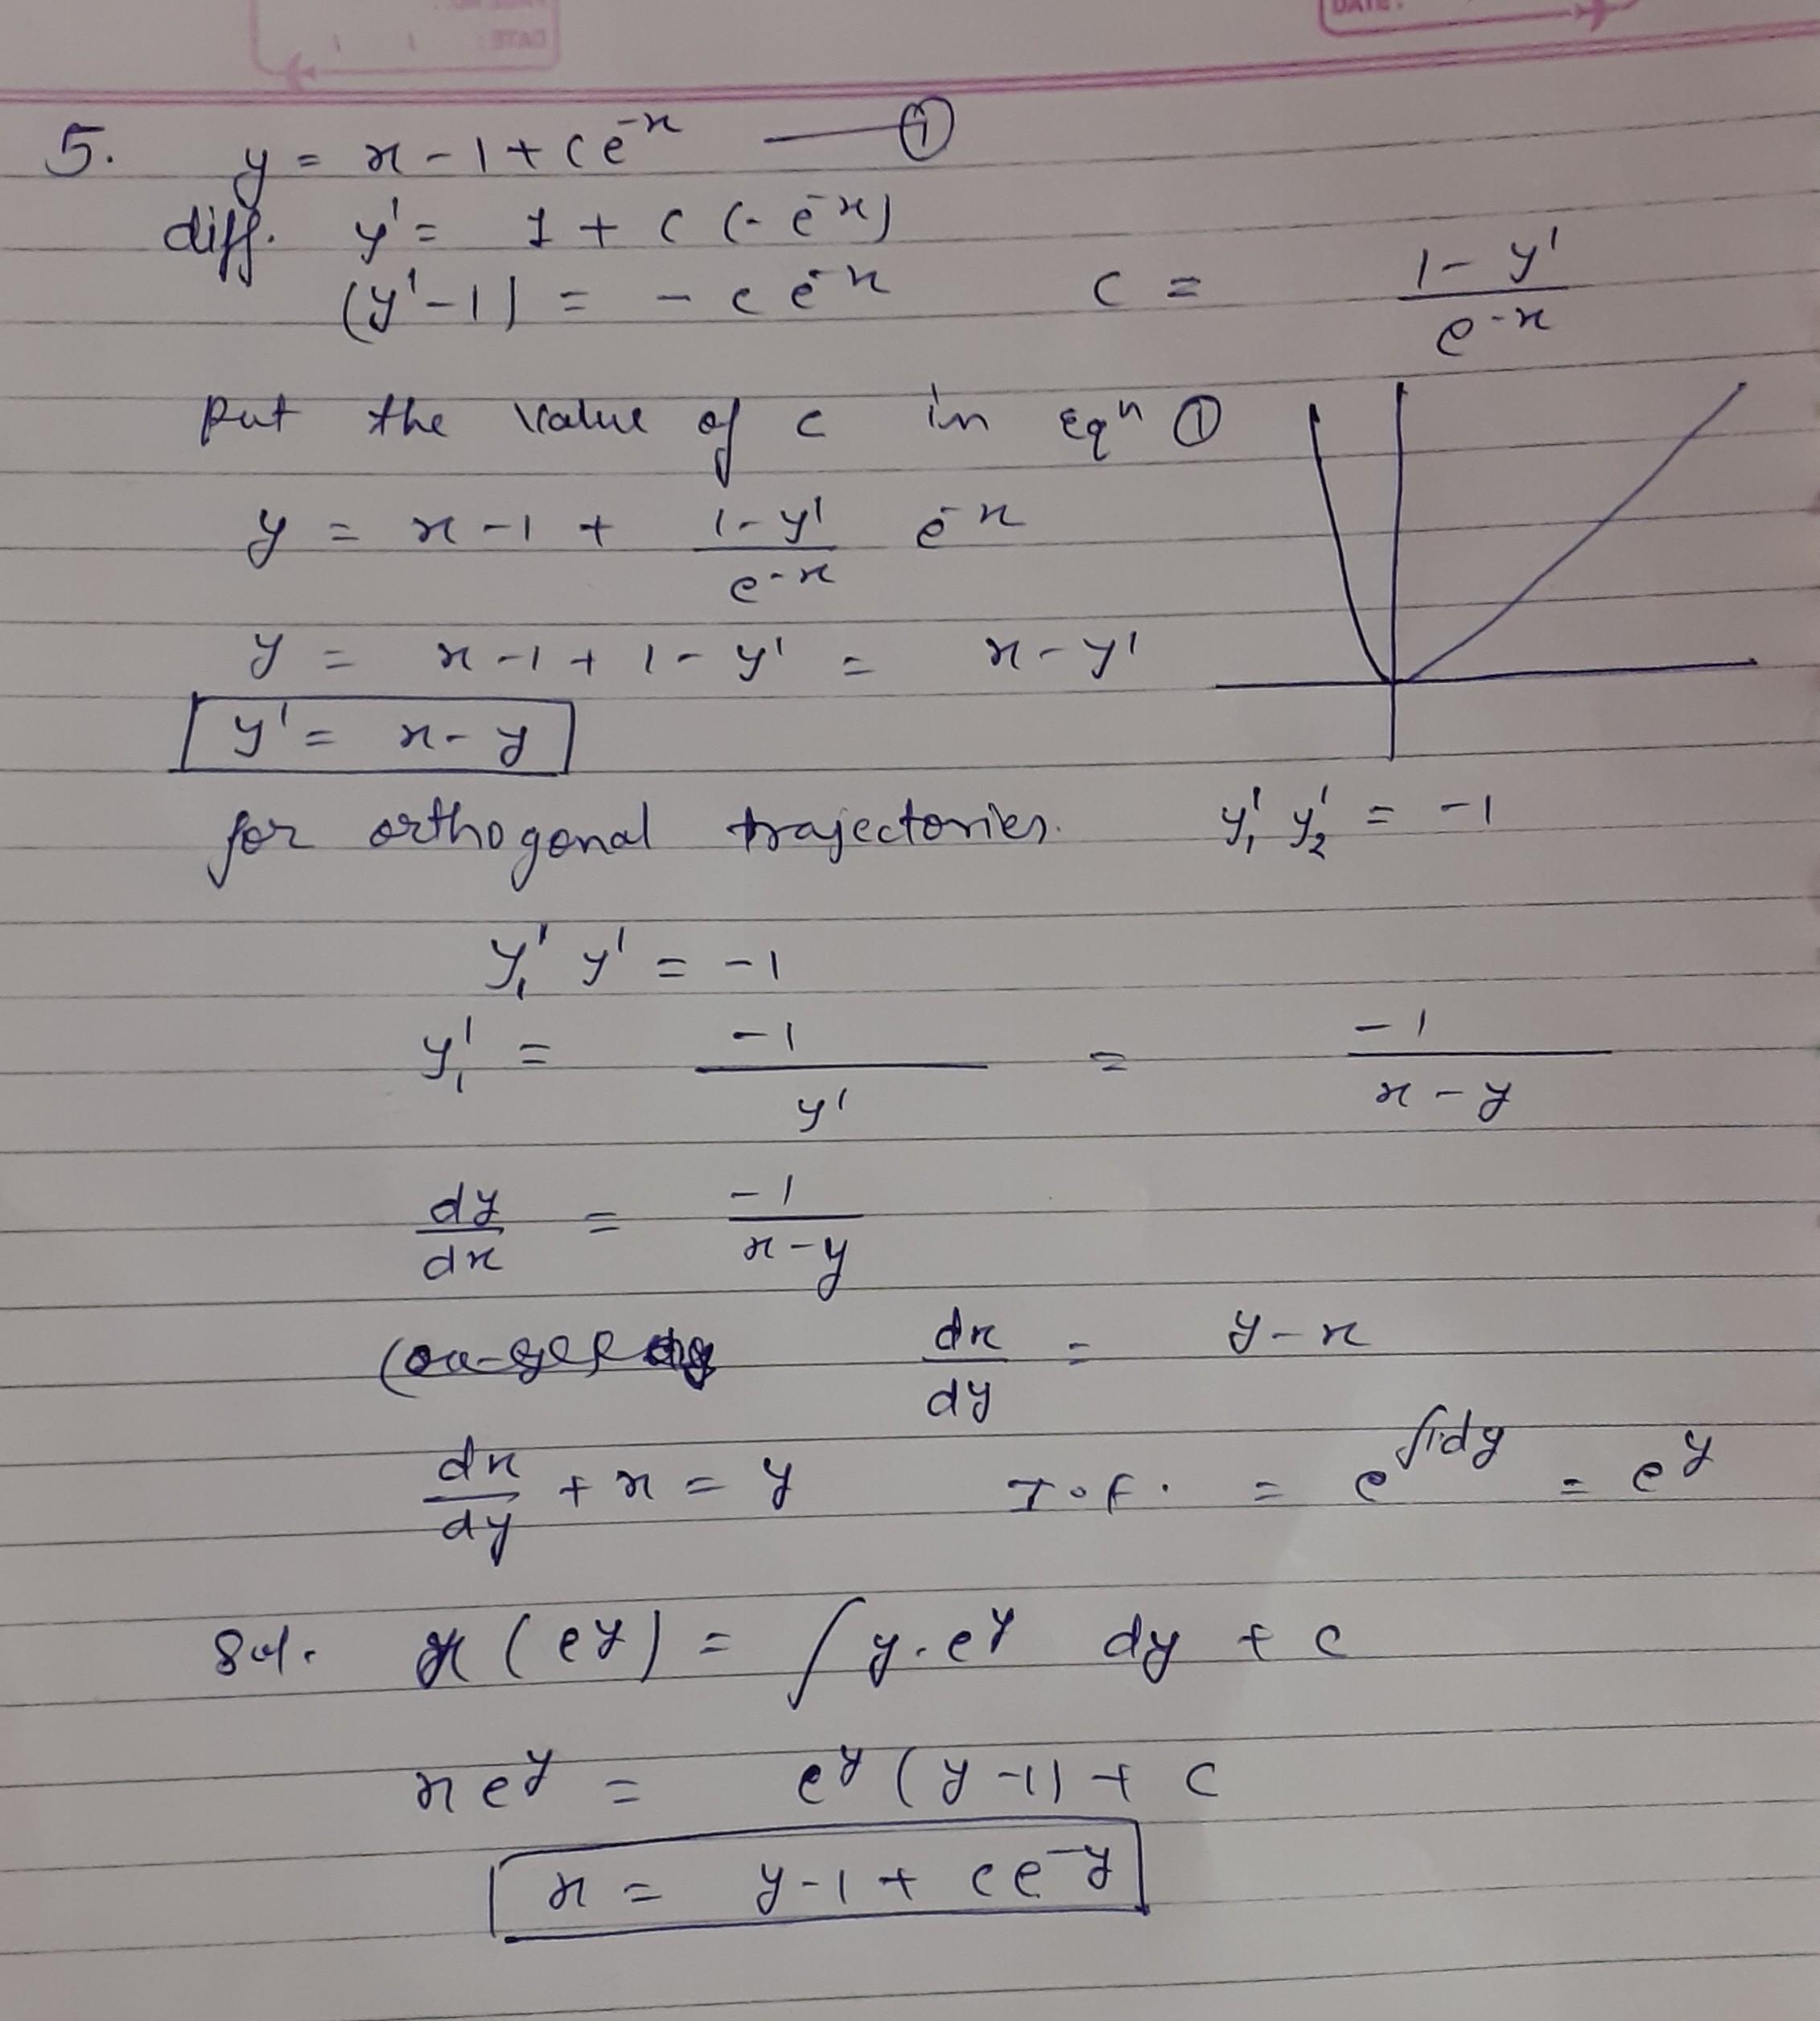 DATE:
5. y = x - 1 + ce^-x —— ①
diff. y' = 1 + c (- e^-x)
(y' - 1) = - c e^-x c = (1 - y')/(e^-x)
put the value of c in Eqn ①
y = x - 1 + (1 - y')/(e^-x) e^-x
y = x - 1 + 1 - y' = x - y'
y' = x - y
for orthogonal trajectories. y₁' y₂' = -1
y₁' y' = -1
y₁' = -1/y' = -1/(x - y)
dy/dx = -1/(x - y)
dx/dy = y - x
dx/dy + x = y I.F. = e^∫1dy = e^y
Sol. x (e^y) = ∫ y.e^y dy + c
x e^y = e^y (y - 1) + c
x = y - 1 + ce^-y